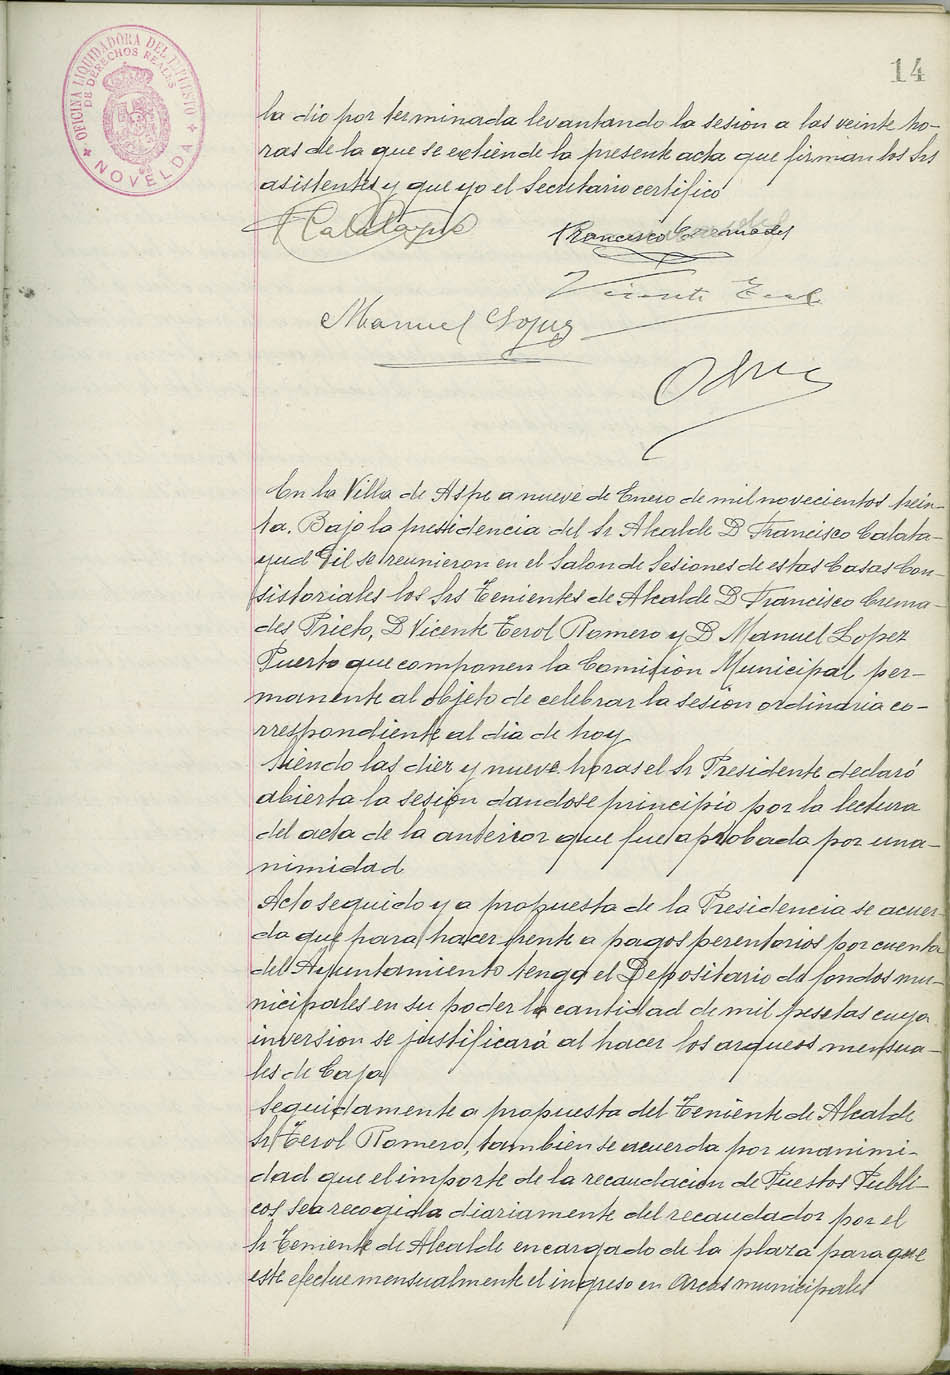 14
OFICINA LIQUIDADORA DEL IMPUESTO
DE DERECHOS REALES
NOVELDA
la dio por terminada levantando la sesion a las veinte ho-
ras de la que se extiende la presente acta que firman los Srs
asistentes y que yo el Secretario certifico
FCalatayud
Francisco Cremades
Vicente Terol
Manuel Lopez
En la Villa de Aspe a nueve de Enero de mil novecientos trein-
ta. Bajo la presidencia del Sr Alcalde D Francisco Calata-
yud Gil se reunieron en el Salon de Sesiones de estas Casas Con-
sistoriales los Srs Tenientes de Alcalde D Francisco Crema-
des Prieto, D Vicente Terol Romero y D Manuel Lopez
Puerto que componen la Comision Municipal per-
manente al objeto de celebrar la sesion ordinaria co-
rrespondiente al dia de hoy
Siendo las diez y nueve horas el Sr Presidente declaró
abierta la sesion dandose principio por la lectura
del acta de la anterior que fue aprobada por una-
nimidad
Acto seguido y a propuesta de la Presidencia se acuer-
da que para hacer frente a pagos perentorios por cuenta
del Ayuntamiento tenga el Depositario de fondos mu-
nicipales en su poder la cantidad de mil pesetas cuya
inversion se justificará al hacer los arqueos mensua-
les de Caja
Seguidamente a propuesta del Teniente de Alcalde
Sr Terol Romero, tambien se acuerda por unanimi-
dad que el importe de la recaudacion de Puestos Publi-
cos sea recogida diariamente del recaudador por el
Sr Teniente de Alcalde encargado de la plaza para que
este efectue mensualmente el ingreso en Arcas municipales